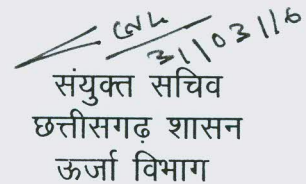 31/03/16
संयुक्त सचिव
छत्तीसगढ़ शासन
ऊर्जा विभाग